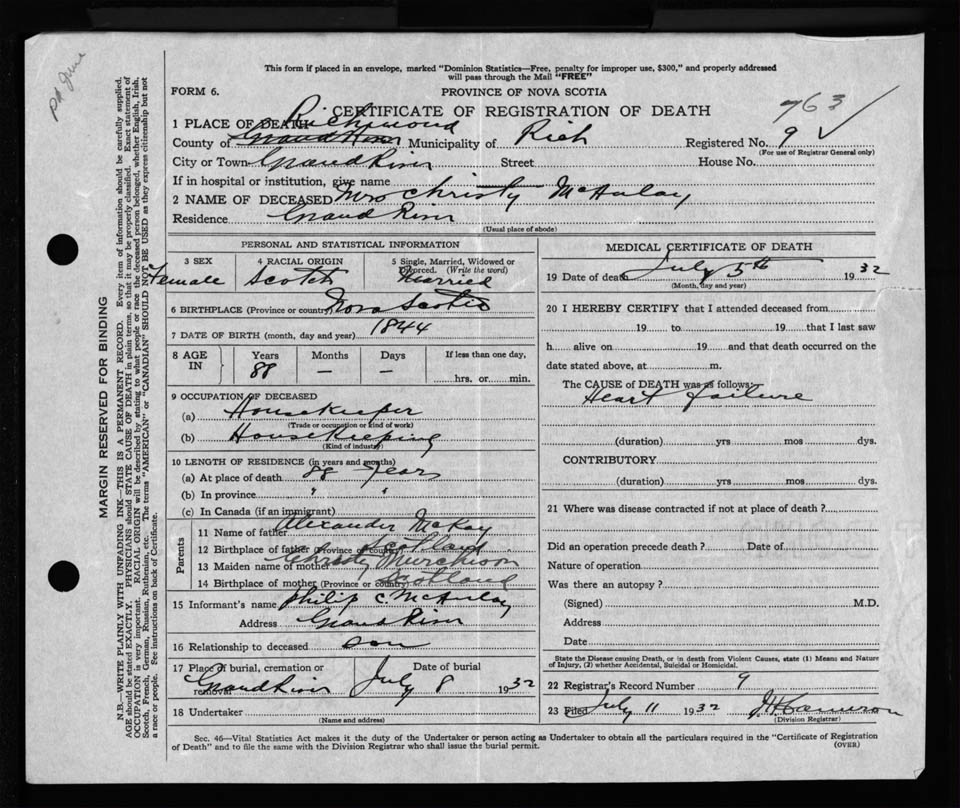 PA June
This form if placed in an envelope, marked "Dominion Statistics—Free, penalty for improper use, $300," and properly addressed
will pass through the Mail "FREE"
FORM 6.
PROVINCE OF NOVA SCOTIA
CERTIFICATE OF REGISTRATION OF DEATH
763 ✓
1 PLACE OF DEATH
Richmond
County of Grand River Municipality of Rich Registered No. 9 ✓
(For use of Registrar General only)
City or Town Grand River Street House No.
If in hospital or institution, give name
2 NAME OF DECEASED Mrs Christy McAulay
Residence Grand River
(Usual place of abode)
PERSONAL AND STATISTICAL INFORMATION
3 SEX
Female
4 RACIAL ORIGIN
Scotch
5 Single, Married, Widowed or
Divorced. (Write the word)
Married
6 BIRTHPLACE (Province or country) Nova Scotia
7 DATE OF BIRTH (month, day and year) 1844
8 AGE IN
Years Months Days If less than one day,
88 — — hrs. or min.
9 OCCUPATION OF DECEASED
(a) Housekeeper
(Trade or occupation or kind of work)
(b) Housekeeping
(Kind of industry)
10 LENGTH OF RESIDENCE (in years and months)
(a) At place of death 88 years
(b) In province " "
(c) In Canada (if an immigrant)
Parents
11 Name of father Alexander McKay
12 Birthplace of father (Province or country) Scotland
13 Maiden name of mother Christy Murchison
14 Birthplace of mother (Province or country) Scotland
15 Informant's name Philip C. McAulay
Address Grand River
16 Relationship to deceased son
17 Place of burial, cremation or removal Grand River
Date of burial
July 8 1932
18 Undertaker
(Name and address)
MEDICAL CERTIFICATE OF DEATH
19 Date of death July 5th 1932
(Month, day and year)
20 I HEREBY CERTIFY that I attended deceased from
19 to 19 that I last saw
h alive on 19 and that death occurred on the
date stated above, at m.
The CAUSE of DEATH was as follows:
Heart failure
(duration) yrs mos dys.
CONTRIBUTORY
(duration) yrs mos dys.
21 Where was disease contracted if not at place of death?
Did an operation precede death? Date of
Nature of operation
Was there an autopsy?
(Signed) M.D.
Address
Date
State the Disease causing Death, or in death from Violent Causes, state (1) Means and Nature
of Injury, (2) whether Accidental, Suicidal or Homicidal.
22 Registrar's Record Number 9
23 Filed July 11 1932
(Division Registrar)
Sec. 46—Vital Statistics Act makes it the duty of the Undertaker or person acting as Undertaker to obtain all the particulars required in the "Certificate of Registration
of Death" and to file the same with the Division Registrar who shall issue the burial permit.
(OVER)
MARGIN RESERVED FOR BINDING
N.B.—WRITE PLAINLY WITH UNFADING INK—THIS IS A PERMANENT RECORD. Every item of information should be carefully supplied.
AGE should be stated EXACTLY. PHYSICIANS should STATE CAUSE OF DEATH in plain terms, so that it may be properly classified. Exact statement of
OCCUPATION is very important. RACIAL ORIGIN will be described by stating to what people or race the deceased person belonged, whether English, Irish,
Scotch, French, German, Russian, Ruthenian, etc. The terms "AMERICAN" or "CANADIAN" SHOULD NOT BE USED as they express citizenship but not
a race or people. See instructions on back of Certificate.